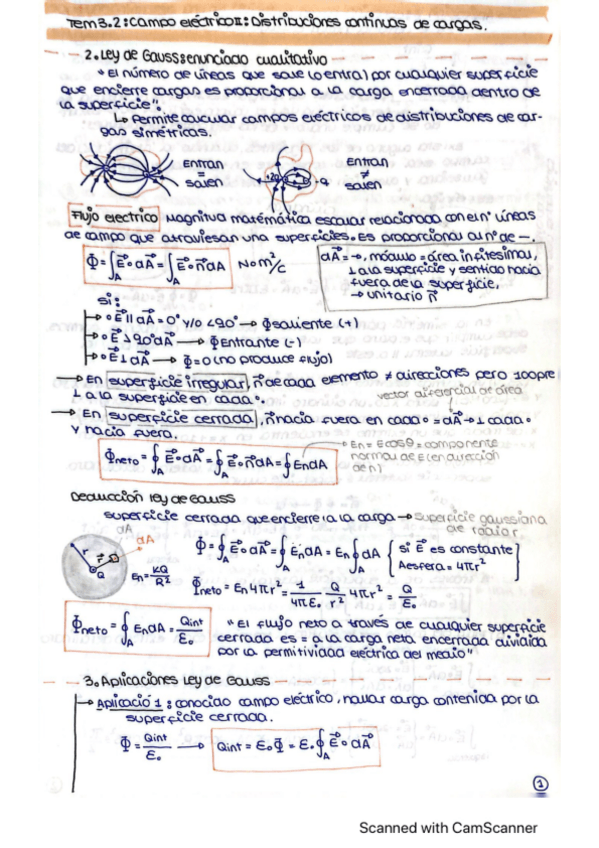 Tem 3.2: Campo eléctrico II: Distribuciones continuas de cargas.
2. Ley de Gauss: enunciado cualitativo
"El número de líneas que sale (o entra) por cualquier superficie
que encierre cargas es proporcional a la carga encerrada dentro de
la superficie".
↳ Permite calcular campos eléctricos de distribuciones de car-
gas simétricas.
Entran = salen
+2q -q Entran ≠ salen
Flujo electrico Magnitud matemática escalar relacionada con el nº líneas
de campo que atraviesan una superficies. Es proporcional al nº de —.
Φ = ∫_A E⃗ ∘ dA⃗ = ∫_A E⃗ ∘ n⃗ dA N∘m²/C
dA⃗ = → módulo = área infitesimal,
⊥ a la superficie y sentido hacia
fuera de la superficie,
→ unitario n⃗
Si:
→ ∘ E⃗ ∥ dA⃗ = 0° y/o < 90° → Φ saliente (+)
→ ∘ E⃗ > 90° dA⃗ → Φ Entrante (-)
→ ∘ E⃗ ⊥ dA⃗ → Φ = 0 (no produce flujo)
→ En superficie irregular, n⃗ de cada elemento ≠ direcciones pero 100pre
⊥ a la superficie en cada ∘.
vector diferencial de área
→ En superficie cerrada, n⃗ hacia fuera en cada ∘ = dA⃗ → ⊥ cada ∘
y hacia fuera.
Φneto = ∮_A E⃗ ∘ dA⃗ = ∮_A E⃗ ∘ n⃗ dA = ∮ En dA
En = E cos θ = componente
normal de E (en dirección
de n)
Deducción Ley de Gauss
superficie cerrada que encierre a la carga → superficie gaussiana
de radio r
dA
dA⃗
r
r⃗
Q
En = KQ/R²
Φ = ∮_A E⃗ ∘ dA⃗ = ∮_A En dA = En ∮_A dA { si E⃗ es constante
A esfera = 4πr² }
Φneto = En 4πr² = 1/4πε₀ Q/r² 4πr² = Q/ε₀
Φneto = ∮_A En dA = Qint/ε₀
"El flujo neto a través de cualquier superficie
cerrada es = a la carga neta encerrada dividida
por la permitividad eléctrica del medio"
3. Aplicaciones Ley de Gauss
→ Aplicació 1: conocido campo eléctrico, hallar carga contenida por la
superficie cerrada.
Φ = Qint/ε₀ → Qint = ε₀ Φ = ε₀ ∮_A E⃗ ∘ dA⃗
1
Scanned with CamScanner